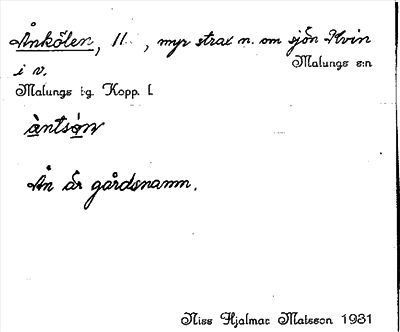 Ånkölen, 11 , myr strax n. om sjön Hvin
Malungs s:n
i v.
Malungs tg. Kopp. l.
àntsọ́n
Ån är gårdsnamn.
Niss Hjalmar Matsson 1931